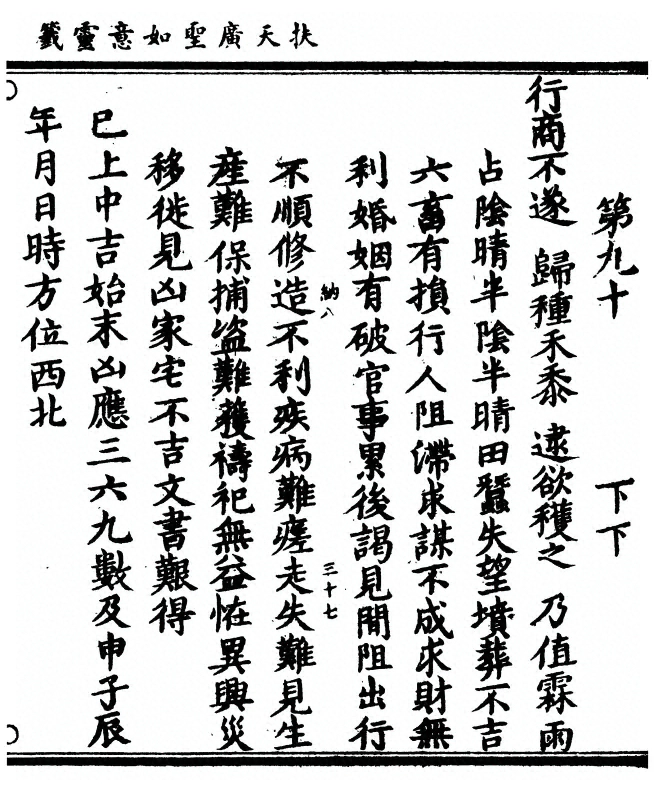 扶天廣聖如意靈籤
第九十 下下
行商不遂 歸種禾黍 逮欲穫之 乃值霖雨
占陰晴半陰半晴田蠶失望墳葬不吉
六畜有損行人阻滯求謀不成求財無
利婚姻有破官事累後謁見間阻出行
納八
三十七
不順修造不利疾病難瘥走失難見生
產難保捕盜難穫禱祀無益怪異興災
移徙見凶家宅不吉文書艱得
已上中吉始末凶應三六九數及申子辰
年月日時方位西北